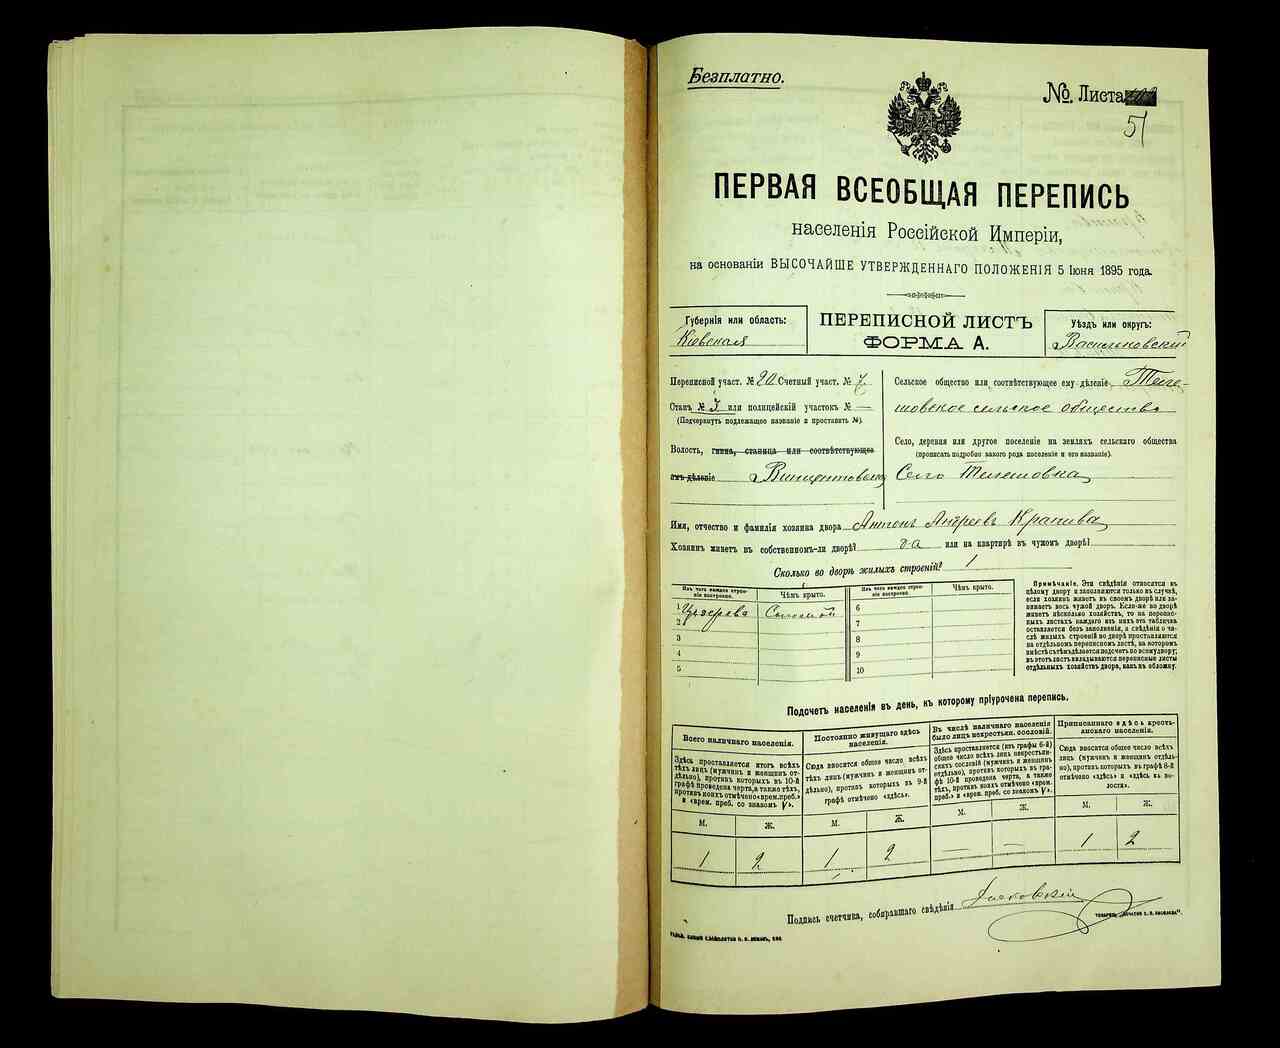 Безплатно.
№. Листа
51
ПЕРВАЯ ВСЕОБЩАЯ ПЕРЕПИСЬ
населенія Россійской Имперіи,
на основаніи ВЫСОЧАЙШЕ УТВЕРЖДЕННАГО ПОЛОЖЕНІЯ 5 Іюня 1895 года.
Губернія или область:
Кіевская
ПЕРЕПИСНОЙ ЛИСТЪ
ФОРМА А.
Уѣздъ или округъ:
Васильковскій
Переписной участ. № 20 Счетный участ. № 7
Станъ № 3 или полицейскій участокъ № —
(Подчеркнуть подлежащее названіе и проставить №).
Волость, гмина, станица или соотвѣтствующее
имъ дѣленіе Винцентовская
Сельское общество или соотвѣтствующее ему дѣленіе Теле-
шовское сельское общество
Село, деревня или другое поселеніе на земляхъ сельскаго общества
(прописать подробно какого рода поселеніе и его названіе).
Село Телешовка
Имя, отчество и фамилія хозяина двора Антонъ Андреевъ Крапива
Хозяинъ живетъ въ собственномъ-ли дворѣ? да или на квартирѣ въ чужомъ дворѣ?
Сколько во дворѣ жилыхъ строеній? 1
Изъ чего каждое строе-
ніе построено.
Чѣмъ крыто.
Изъ чего каждое строе-
ніе построено.
Чѣмъ крыто.
1 Изъ дерева Соломой 6
2 7
3 8
4 9
5 10
Примѣчаніе. Эти свѣдѣнія относятся къ
цѣлому двору и заполняются только въ случаѣ,
если хозяинъ живетъ въ своемъ дворѣ или за-
нимаетъ весь чужой дворъ. Если-же во дворѣ
живетъ нѣсколько хозяйствъ, то на перепис-
ныхъ листахъ каждаго изъ нихъ эта табличка
оставляется безъ заполненія, а свѣдѣнія о чи-
слѣ жилыхъ строеній во дворѣ проставляются
на отдѣльномъ переписномъ листѣ, на которомъ
вмѣстѣ съ тѣмъ дѣлается подсчетъ по всему двору;
въ этотъ листъ вкладываются переписные листы
отдѣльныхъ хозяйствъ двора, какъ въ обложку.
Подсчетъ населенія въ день, къ которому пріурочена перепись.
Всего наличнаго населенія.
Здѣсь проставляется итогъ всѣхъ
тѣхъ лицъ (мужчинъ и женщинъ от-
дѣльно), противъ которыхъ въ 10-й
графѣ проведена черта, а также тѣхъ,
противъ коихъ отмѣчено «врем. преб.»
и «врем. преб. со знакомъ V».
Постоянно живущаго здѣсь
населенія.
Сюда вносится общее число всѣхъ
тѣхъ лицъ (мужчинъ и женщинъ от-
дѣльно), противъ которыхъ въ 9-й
графѣ отмѣчено «здѣсь».
Въ числѣ наличнаго населенія
было лицъ некрестьян. сословій.
Здѣсь проставляется (изъ графы 6-й)
общее число всѣхъ лицъ некрестьян-
скихъ сословій (мужчинъ и женщинъ
отдѣльно), противъ которыхъ въ гра-
фѣ 10-й проведена черта, а также
тѣхъ, противъ коихъ отмѣчено «врем.
преб.» и «врем. преб. со знакомъ V».
Приписаннаго здѣсь кресть-
янскаго населенія.
Сюда вносится общее число всѣхъ
лицъ (мужчинъ и женщинъ отдѣль-
но), противъ которыхъ въ графѣ 8-й
отмѣчено «здѣсь» и «здѣсь въ во-
лости».
М. Ж. М. Ж. М. Ж. М. Ж.
1 2 1 2 — — 1 2
Подпись счетчика, собиравшаго свѣдѣнія